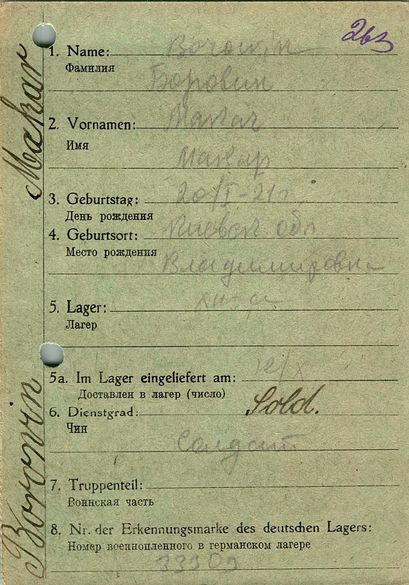 Makar
Borovin
263
1. Name: Borowin
Фамилия
Боровин
2. Vornamen: Makar
Имя
Макар
3. Geburtstag: 20/I-21г
День рождения
4. Geburtsort: Киевск обл
Место рождения
Владимировка
5. Lager:
Лагер
5a. Im Lager eingeliefert am: 12/X
Доставлен в лагер (число)
6. Dienstgrad: Sold.
Чин
Солдат
7. Truppenteil:
Воинская часть
8. Nr. der Erkennungsmarke des deutschen Lagers:
Номер военнопленного в германском лагере